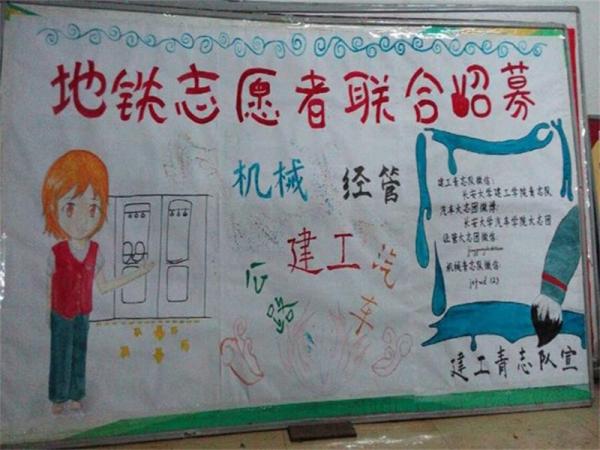 地铁志愿者联合招募
机械 经管
建工 汽车
公路
建工青志队微信:
长安大学建工学院青志队
汽车大志团微博:
长安大学汽车学院大志团
经管大志团微信:
机械青志队微信:
建工青志队宣